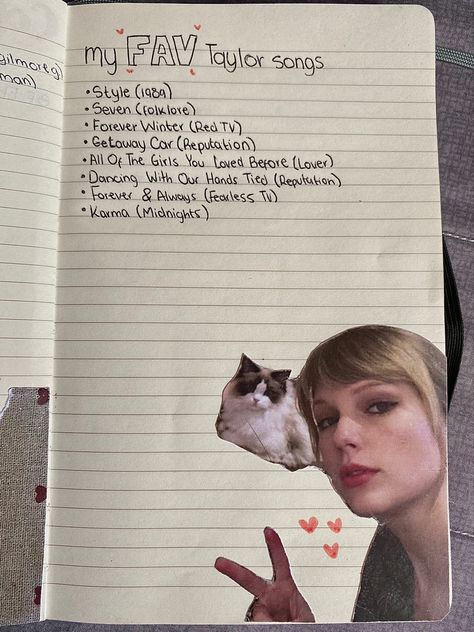 gilmore g
man)
my FAV Taylor songs
• Style (1989)
• Seven (folklore)
• Forever Winter (Red TV)
• Getaway Car (Reputation)
• All Of The Girls You Loved Before (Lover)
• Dancing With Our Hands Tied (Reputation)
• Forever & Always (Fearless TV)
• Karma (Midnights)